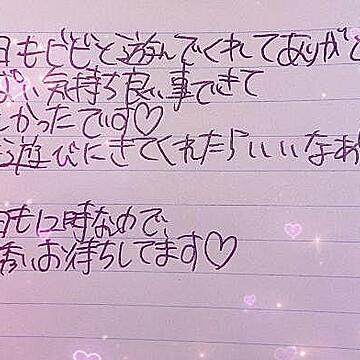 日もビビと遊んでくれてありがと
ぱい気持ち良い事できて
しかったです♡
遊びにきてくれたらいいなあ
日も12時なので、
お待ちしてます♡